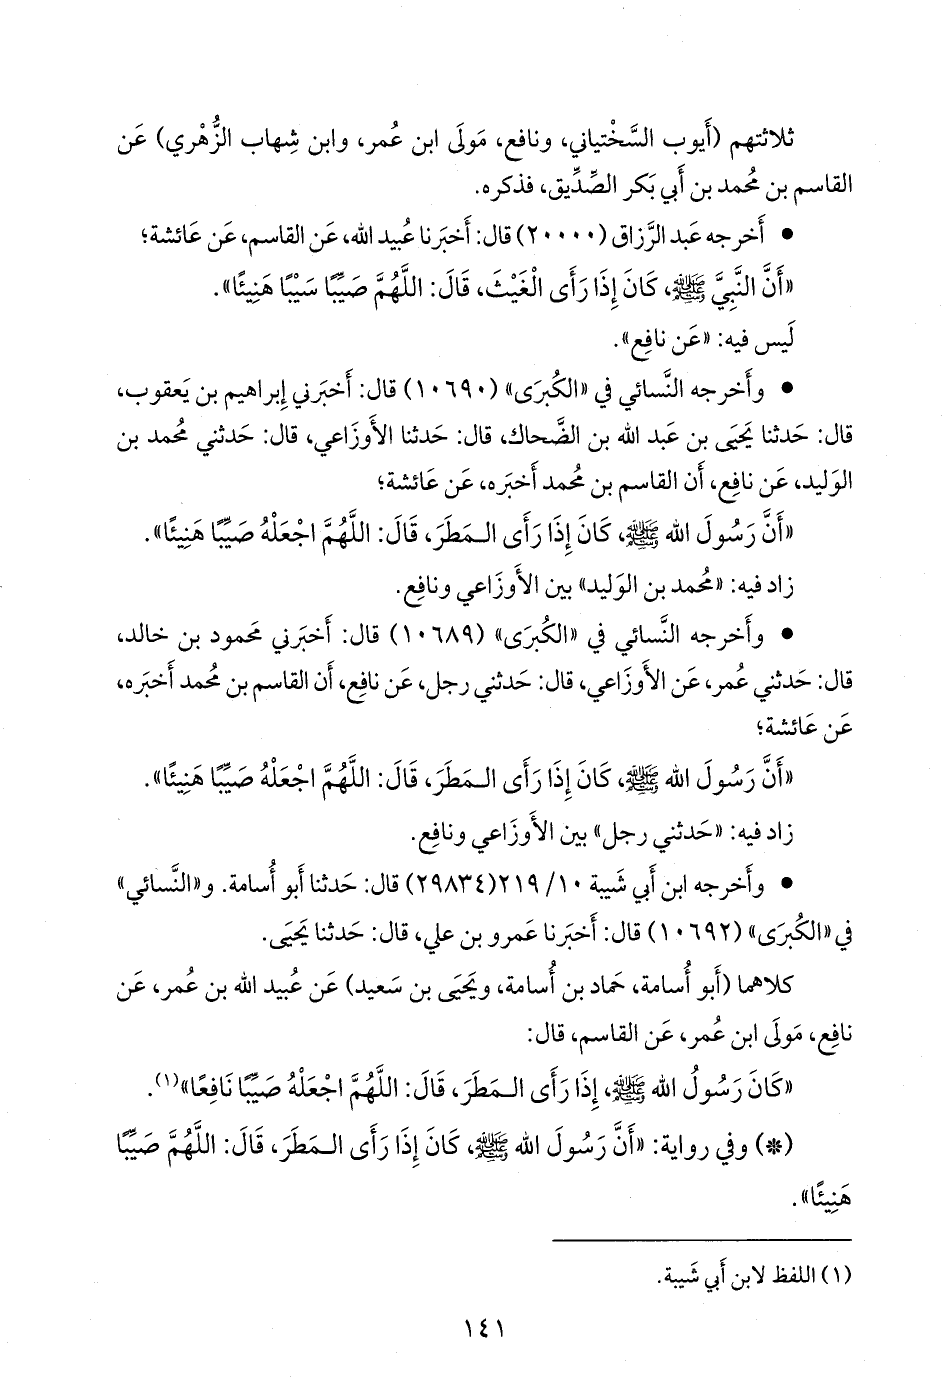 ثلاثتهم (أَيوب السَّختياني، ونافع، مَولَى ابن عُمر، وابن شِهاب الزُّهْري) عَن
القاسم بن مُحمد بن أَبي بَكر الصِّدِّيق، فذكره.
• أَخرجه عَبد الرَّزاق (٢٠٠٠٠) قال: أَخبَرنا عُبيد الله، عَن القاسم، عَن عَائشة؛
«أَنَّ النَّبِيَّ ﷺ، كَانَ إِذَا رَأَى الْغَيْثَ، قَالَ: اللَّهُمَّ صَيِّبًا سَيْبًا هَنِيئًا».
لَيس فيه: «عَن نافِع».
• وأَخرجه النَّسائي في «الكُبرَى» (١٠٦٩٠) قال: أَخبَرني إِبراهيم بن يَعقوب،
قال: حَدثنا يَحيَى بن عَبد الله بن الضَّحاك، قال: حَدثنا الأَوزَاعي، قال: حَدثني مُحمد بن
الوَليد، عَن نافِع، أَن القاسم بن مُحمد أَخبَره، عَن عَائشة؛
«أَنَّ رَسُولَ الله ﷺ، كَانَ إِذَا رَأَى الـمَطَرَ، قَالَ: اللَّهُمَّ اجْعَلْهُ صَيِّبًا هَنِيئًا».
زاد فيه: «مُحمد بن الوَليد» بين الأَوزَاعي ونافِع.
• وأَخرجه النَّسائي في «الكُبرَى» (١٠٦٨٩) قال: أَخبَرني مَحمود بن خالد،
قال: حَدثني عُمر، عَن الأَوزَاعي، قال: حَدثني رجل، عَن نافِع، أَن القاسم بن مُحمد أَخبَره،
عَن عَائشة؛
«أَنَّ رَسُولَ الله ﷺ، كَانَ إِذَا رَأَى الـمَطَرَ، قَالَ: اللَّهُمَّ اجْعَلْهُ صَيِّبًا هَنِيئًا».
زاد فيه: «حَدثني رجل» بين الأَوزَاعي ونافِع.
• وأَخرجه ابن أَبي شَيبة ١٠/ ٢١٩(٢٩٨٣٤) قال: حَدثنا أَبو أُسامة. و«النَّسائي»
في «الكُبرَى» (١٠٦٩٢) قال: أَخبَرنا عَمرو بن علي، قال: حَدثنا يَحيَى.
كلاهما (أَبو أُسامة، حَماد بن أُسامة، ويَحيَى بن سَعيد) عَن عُبيد الله بن عُمر، عَن
نافِع، مَولَى ابن عُمر، عَن القاسم، قال:
«كَانَ رَسُولُ الله ﷺ، إِذَا رَأَى الـمَطَرَ، قَالَ: اللَّهُمَّ اجْعَلْهُ صَيِّبًا نَافِعًا»(١).
(*) وفي رواية: «أَنَّ رَسُولَ الله ﷺ، كَانَ إِذَا رَأَى الـمَطَرَ، قَالَ: اللَّهُمَّ صَيِّبًا
هَنِيئًا».
(١) اللفظ لابن أَبي شَيبة.
١٤١